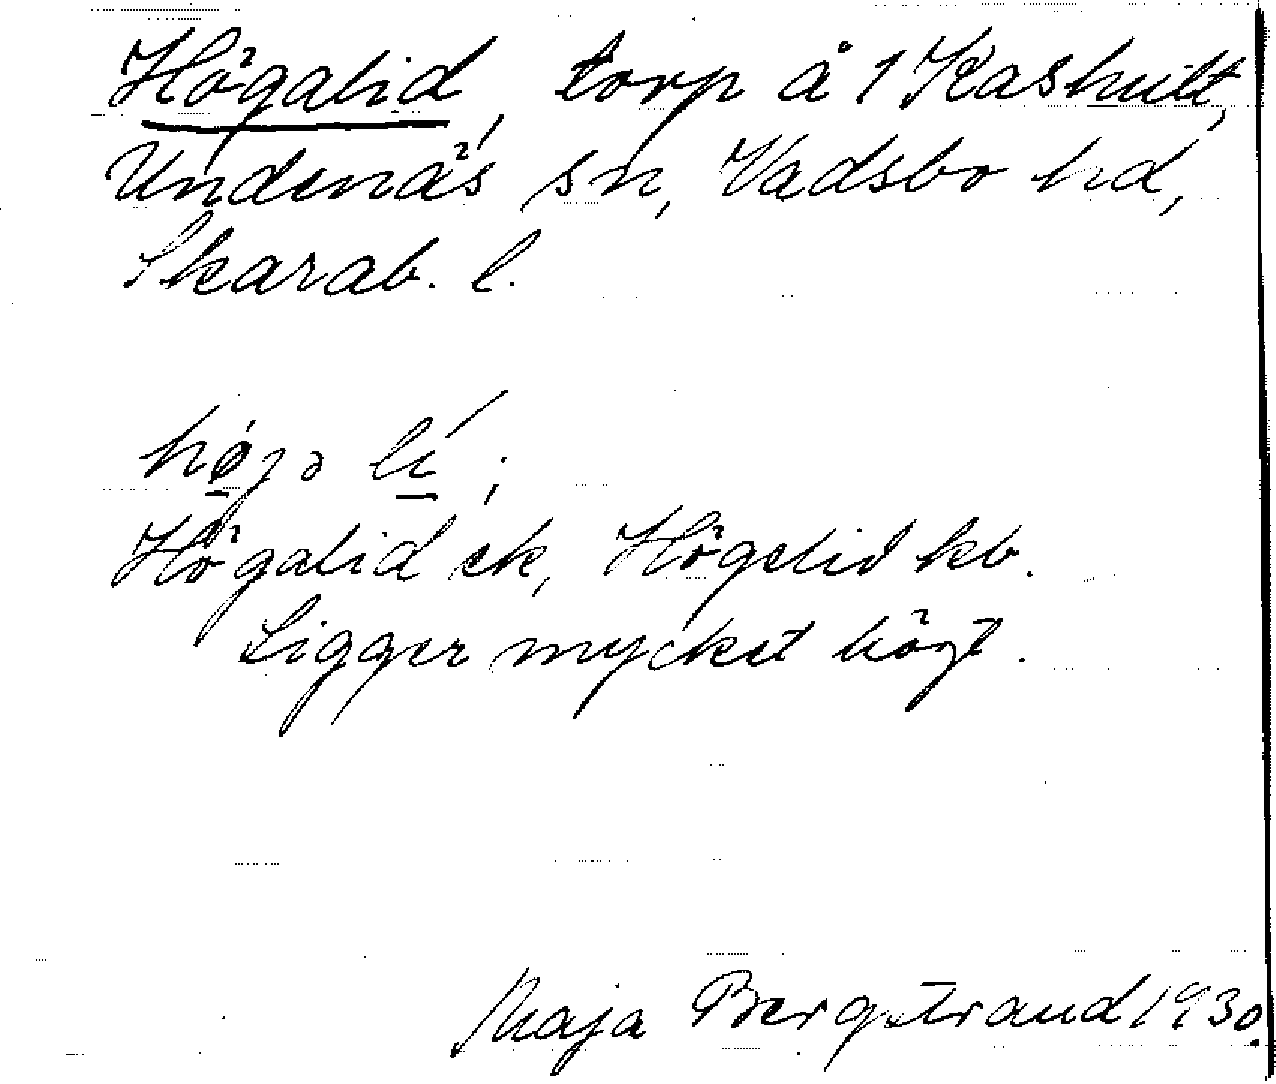 Högalid, torp å 1 Kashult,
Undenäs sn, Vadsbo hd,
Skarab. l.
högə lí;
Högalid ek, Högelid kb.
Ligger mycket högt.
Maja Bergstrand 1930.